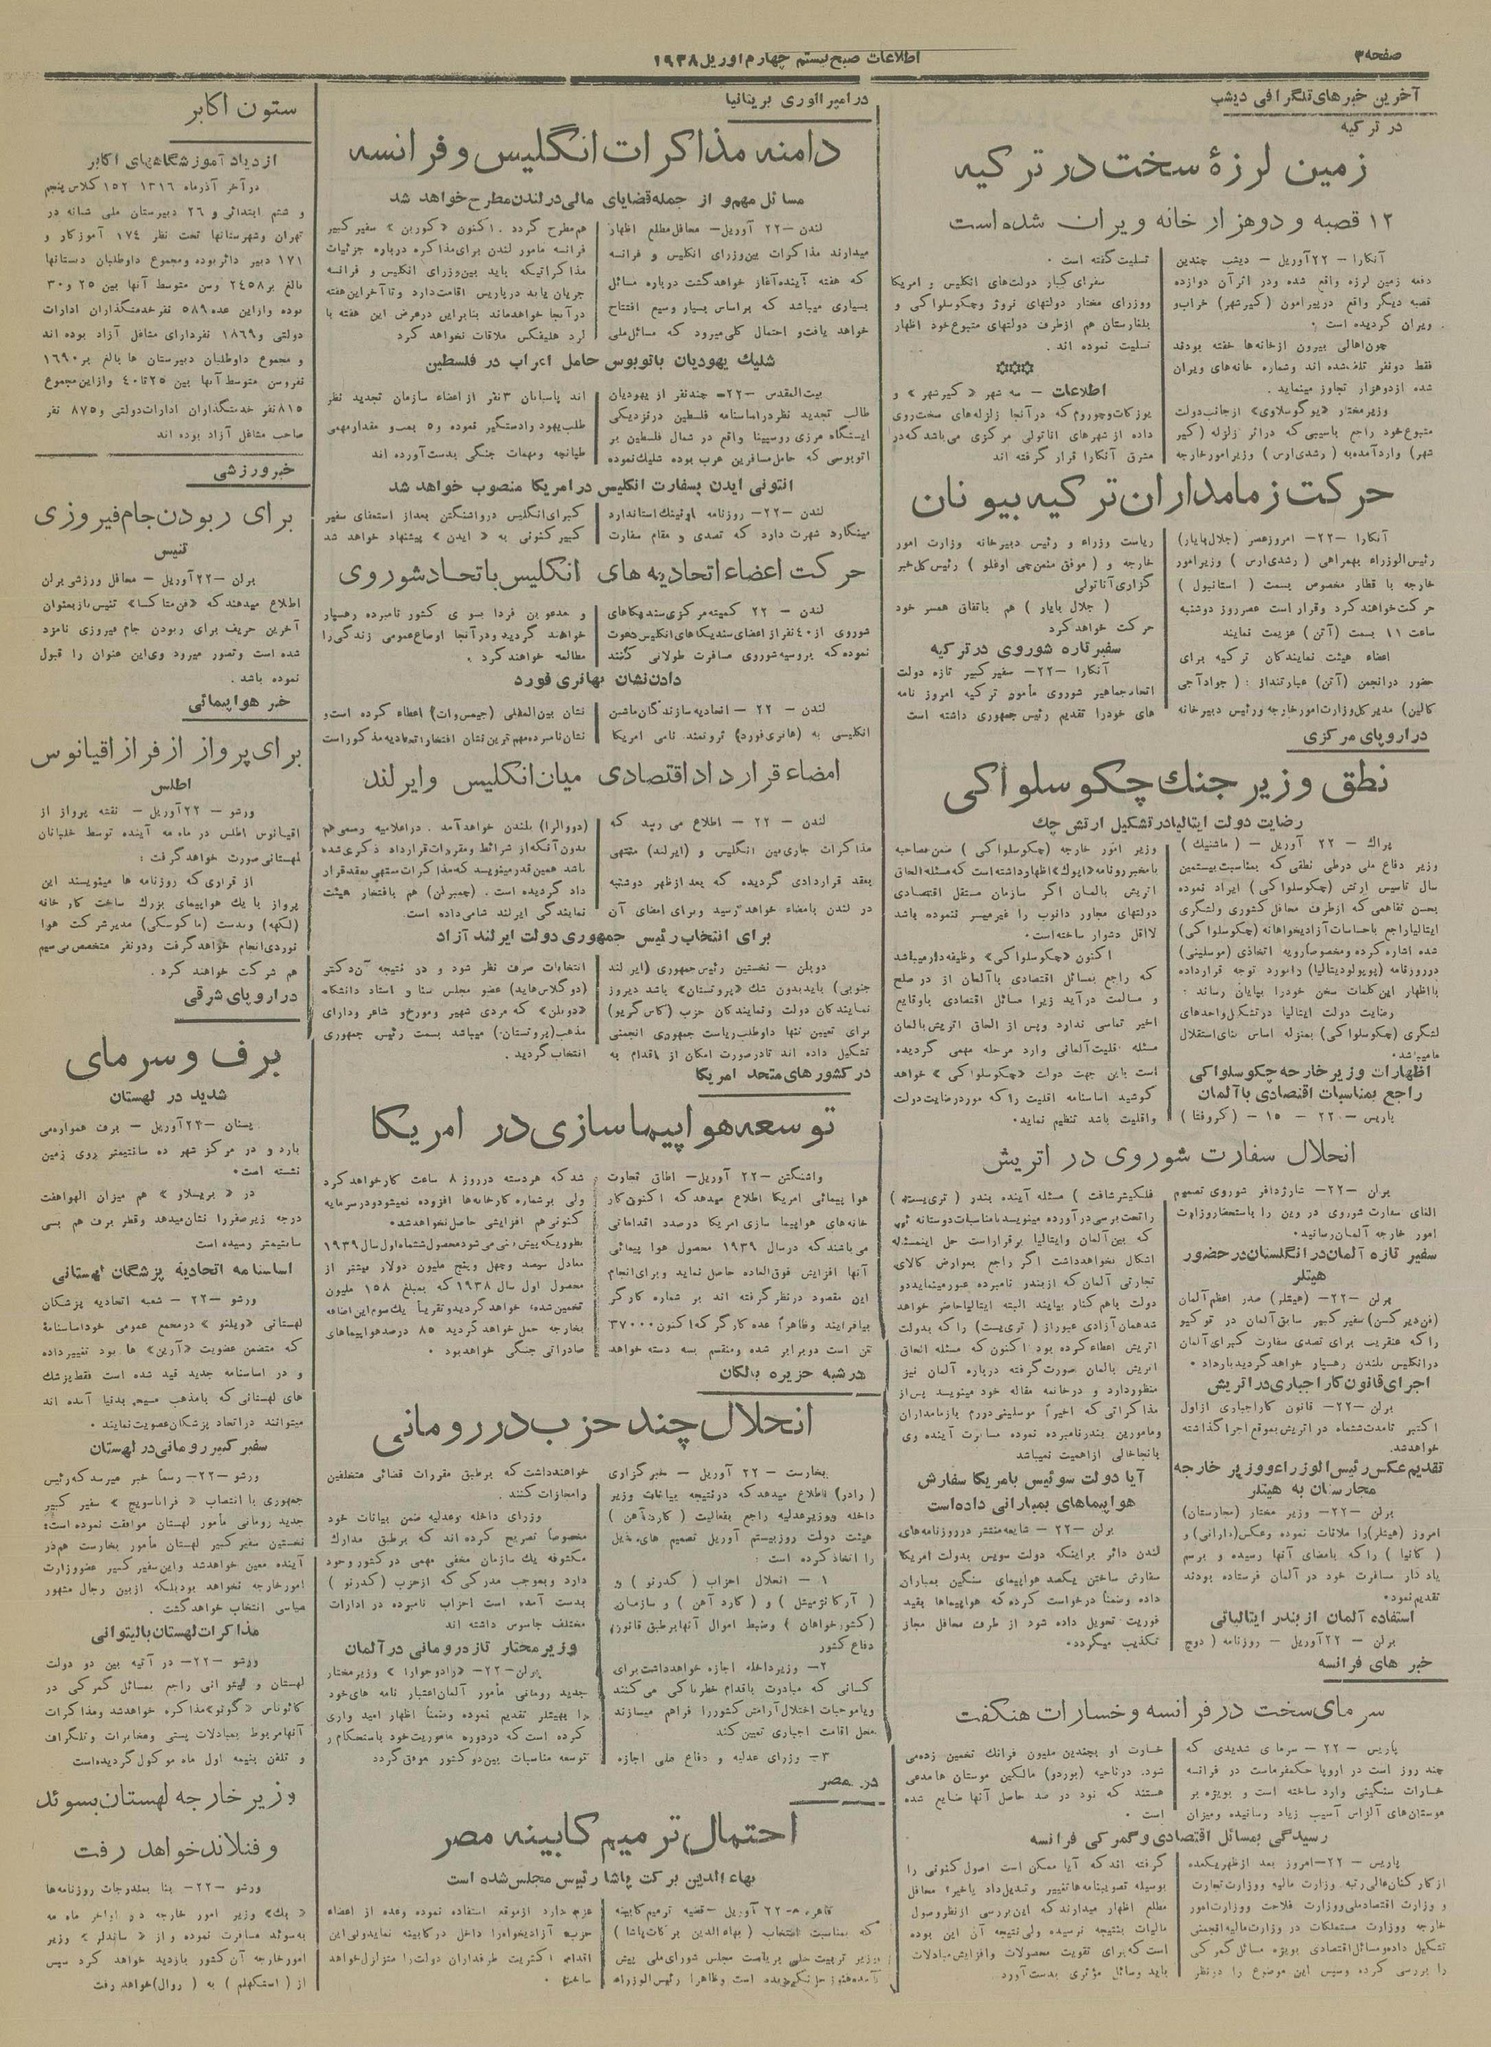 صفحه ۳
اطلاعات صبح بیستم چهارم اوریل ۱۹۳۸
آخرین خبرهای تلگرافی دیشب
در ترکیه
زمین لرزهٔ سخت در ترکیه
۱۲ قصبه و دوهزار خانه ویران شده است
آنکارا – ۲۲ آوریل – دیشب چندین
دفعه زمین لرزه واقع شده ودر اثر آن دوازده
قصبه دیگر واقع در پیرامون (کیرشهر) خراب و
ویران گردیده است .
چون اهالی بیرون از خانه‌ها خفته بودند
فقط دونفر تلف شده اند وشماره خانه‌های ویران
شده از دوهزار تجاوز مینماید .
وزیر مختار «یوگوسلاوی» از جانب دولت
متبوع خود راجع باسیبی که در اثر زلزله (کیر
شهر) وارد آمده به (رشدی ارس) وزیر امور خارجه
تسلیت گفته است .
سفرای کبار دولت‌های انگلیس و امریکا
ووزرای مختار دولتهای نروژ وچکوسلواکی و
بلغارستان هم از طرف دولتهای متبوع خود اظهار
تسلیت نموده اند .
اطلاعات – سه شهر « کیرشهر » و
یوزکات وچوروم که در آنجا زلزله های سخت روی
داده از شهرهای اناتولی مرکزی می‌باشد که در
مشرق آنکارا قرار گرفته اند
حرکت زمامداران ترکیه بیونان
آنکارا –۲۲– امروز عصر (جلال بایار)
رئیس الوزراء بهمراهی (رشدی ارس) وزیر امور
خارجه با قطار مخصوص بسمت (استانبول)
حرکت خواهند کرد وقرار است عصر روز دوشنبه
ساعت ۱۱ بسمت (آتن) عزیمت نمایند
اعضاء هیئت نمایندگان ترکیه برای
حضور در انجمن (آتن) عبارتند از : (جواد آجی
کالین) مدیر کل وزارت امور خارجه ورئیس دبیرخانه
ریاست وزراء و رئیس دبیرخانه وزارت امور
خارجه و (موفق منمن‌چی اوغلو) رئیس کل خبر
گزاری آناتولی
( جلال بایار ) هم باتفاق همسر خود
حرکت خواهد کرد
سفیر تازه شوروی در ترکیه
آنکارا –۲۲– سفیر کبیر تازه دولت
اتحاد جماهیر شوروی مأمور ترکیه امروز نامه
های خود را تقدیم رئیس جمهوری داشته است
در اروپای مرکزی
نطق وزیر جنگ چکوسلواکی
رضایت دولت ایتالیا در تشکیل ارتش چک
پراگ – ۲۲ آوریل – (ماشنیک)
وزیر دفاع ملی درطی نطقی که بمناسبت بیستمین
سال تاسیس ارتش (چکوسلواکی) ایراد نموده
بحسن تفاهمی که از طرف محافل کشوری ولشگری
ایتالیا راجع باحساسات آزادیخواهانه (چکوسلواکی)
شده اشاره کرده ومخصوصا رویه اتخاذی (موسلینی)
در روزنامه (پوپولودیتالیا) را مورد توجه قرارداده
با اظهار این کلمات سخن خود را بپایان رساند :
رضایت دولت ایتالیا در تشکیل واحدهای
لشگری (چکوسلواکی) بمنزله اساس بنای استقلال
ما میباشد .
اظهارات وزیر خارجه چکوسلواکی
راجع بمناسبات اقتصادی با آلمان
پاریس – ۲۲۰ – ۱۵ – (کروفتا)
وزیر امور خارجه (چکوسلواکی) ضمن مصاحبه
با مخبر روزنامه «اپوک» اظهار داشته است که مسئله الحاق
اتریش بالمان اگر سازمان مستقل اقتصادی
دولتهای مجاور دانوب را غیر میسر ننموده باشد
لااقل دشوار ساخته است .
اکنون «چکوسلواکی» وظیفه دار میباشد
که راجع بمسائل اقتصادی با آلمان از در صلح
و مسالمت درآید زیرا مسائل اقتصادی باوقایع
اخیر تماسی ندارد وپس از الحاق اتریش بالمان
مسئله اقلیت آلمانی وارد مرحله مهمی گردیده
است باین جهت دولت «چکوسلواکی» خواهد
کوشید اساسنامه اقلیت را که مورد رضایت دولت
واقلیت باشد تنظیم نماید .
انحلال سفارت شوروی در اتریش
برلن –۲۲– شارژدافر شوروی تصمیم
الغای سفارت شوروی در وین را باستحضار وزارت
امور خارجه آلمان رسانید .
سفیر تازه آلمان در انگلستان در حضور
هیتلر
برلن –۲۲– (هیتلر) صدر اعظم آلمان
(فن دیرکسن) سفیر کبیر سابق آلمان در توکیو
را که عنقریب برای تصدی سفارت کبرای آلمان
در انگلیس بلندن رهسپار خواهد گردید بار داد .
اجرای قانون کار اجباری در اتریش
برلن –۲۲– قانون کار اجباری از اول
اکتبر تا مدت ششماه در اتریش بموقع اجرا گذاشته
خواهد شد .
تقدیم عکس رئیس الوزراء و وزیر خارجه
مجارستان به هیتلر
برلن –۲۲– وزیر مختار (مجارستان)
امروز (هیتلر) را ملاقات نموده وعکس (دارانی) و
( کانیا ) را که بامضای آنها رسیده و برسم
یاد گار مسافرت خود در آلمان فرستاده بودند
تقدیم نمود .
استفاده آلمان از بندر ایتالیائی
برلن – ۲۲ آوریل – روزنامه ( دوچ
فلکیشر شافت ) مسئله آینده بندر ( تریسته )
را تحت بررسی درآورده مینویسد با مناسبات دوستانه
که بین آلمان وایتالیا برقرار است حل این مسئله
اشکال نخواهد داشت اگر راجع بعوارض کالای
تجارتی آلمان که از بندر نامبرده عبور مینماید دو
دولت باهم کنار بیایند البته ایتالیا حاضر خواهد
شد همان آزادی عبور از (تریست) را که بدولت
اتریش اعطاء کرده بود اکنون که مسئله الحاق
اتریش بالمان صورت گرفته درباره آلمان نیز
منظور دارد و در خاتمه مقاله خود مینویسد پس از
مذاکراتی که اخیرا موسلینی در رم با زمامداران
ومامورین بندر نامبرده نموده مسافرت آینده وی
بانجا خالی از اهمیت نمیباشد
آیا دولت سوئیس بامریکا سفارش
هواپیماهای بمبارانی داده است
برلن – ۲۲ – شایعه منتشر در روزنامه‌های
لندن دائر براینکه دولت سویس بدولت امریکا
سفارش ساختن یکصد هواپیمای سنگین بمباران
داده وضمناً درخواست کرده که هواپیماها بقید
فوریت تحویل داده شود از طرف محافل مجاز
تکذیب میگردد .
خبر های فرانسه
سرمای سخت در فرانسه و خسارات هنگفت
پاریس – ۲۲– سرمای شدیدی که
چند روز است در اروپا حکمفرماست در فرانسه
خسارات سنگینی وارد ساخته است و بویژه بر
موستان‌های آلزاس آسیب زیاد رسانیده ومیزان
خسارت او بچندین ملیون فرانک تخمین زده می
شود. درناحیه (بوردو) مالکین موستان ها مدعی
هستند که نود در صد حاصل آنها ضایع شده
است .
رسیدگی بمسائل اقتصادی و گمرکی فرانسه
پاریس – ۲۲– امروز بعد از ظهر یکعده
از کارکنان عالی رتبه وزارت مالیه ووزارت تجارت
و وزارت اقتصاد ملی ووزارت فلاحت ووزارت امور
خارجه ووزارت مستملکات در وزارت مالیه انجمنی
تشکیل داده ومسائل اقتصادی بویژه مسائل گمرکی
را بررسی کرده وسپس این موضوع را در نظر
گرفته اند که آیا ممکن است اصول کنونی را
بوسیله تصویبنامه ها تغییر و تبدیل داد یا خیر؟ محافل
مطلع اظهار میدارند که این بررسی از نظر وصول
مالیات بنتیجه نرسیده ولی نتیجه آن این بوده
است که برای تقویت محصولات وافزایش مبادلات
باید وسائل مؤثری بدست آورد .
در امپراطوری بریتانیا
دامنه مذاکرات انگلیس و فرانسه
مسائل مهم و از جمله قضایای مالی در لندن مطرح خواهد شد
لندن –۲۲ آوریل– محافل مطلع اظهار
میدارند مذاکرات بین وزرای انگلیس و فرانسه
که هفته آینده آغاز خواهد گشت درباره مسائل
بسیاری میباشد که بر اساس بسیار وسیع افتتاح
خواهد یافت و احتمال کلی میرود که مسائل ملی
هم مطرح گردد . اکنون «کوربن» سفیر کبیر
فرانسه مامور لندن برای مذاکره درباره جزئیات
مذاکراتیکه باید بین وزرای انگلیس و فرانسه
جریان یابد در پاریس اقامت دارد و تا آخر این هفته
در آنجا خواهد ماند بنابراین در عرض این هفته با
لرد هلیفکس ملاقات نخواهد کرد
شلیک یهودیان باتوبوس حامل اعراب در فلسطین
بیت المقدس –۲۲– چند نفر از یهودیان
طالب تجدید نظر در اساسنامه فلسطین در نزدیکی
ایستگاه مرزی روسیینا واقع در شمال فلسطین بر
اتوبوسی که حامل مسافرین عرب بوده شلیک نموده
اند پاسبانان ۳ نفر از اعضاء سازمان تجدید نظر
طلب یهود را دستگیر نموده و ۵ بمب و مقدار مهمی
طپانچه ومهمات جنگی بدست آورده اند
انتونی ایدن بسفارت انگلیس در امریکا منصوب خواهد شد
لندن –۲۲– روزنامه اونینک استاندارد
مینگارد شهرت دارد که تصدی و مقام سفارت
کبرای انگلیس درواشنگتن بعد از استعفای سفیر
کبیر کنونی به « ایدن » پیشنهاد خواهد شد
حرکت اعضاء اتحادیه های انگلیس باتحاد شوروی
لندن – ۲۲ کمیته مرکزی سندیکاهای
شوروی از ۴۰ نفر از اعضای سندیکاهای انگلیس دعوت
نموده که بروسیه شوروی مسافرت طولانی کنند
و مدعوین فردا بسوی کشور نامبرده رهسپار
خواهند گردید ودر آنجا اوضاع عمومی زندگی را
مطالعه خواهند کرد .
دادن نشان بهانری فورد
لندن – ۲۲ – اتحادیه سازندگان ماشین
انگلیسی به (هانری فورد) ثروتمند نامی امریکا
نشان بین المللی (جیمس وات) اعطاء کرده است و
نشان نامبرده مهم ترین نشان افتخار اتحادیه مذکور است
امضاء قرارداد اقتصادی میان انگلیس و ایرلند
لندن – ۲۲ – اطلاع می رسد که
مذاکرات جاری بین انگلیس و (ایرلند) منتهی
بعقد قراردادی گردیده که بعد از ظهر دوشنبه
در لندن بامضاء خواهد رسید وبرای امضای آن
(دووالرا) بلندن خواهد آمد . در اعلامیه رسمی هم
بدون آنکه از شرائط ومقررات قرارداد ذکری شده
باشد همین قدر مینویسد که مذاکرات منتهی بعقد قرار
داد گردیده است . (چمبرلن) هم بافتخار هیئت
نمایندگی ایرلند شامی داده است .
برای انتخاب رئیس جمهوری دولت ایرلند آزاد
دوبلن – نخستین رئیس جمهوری (ایر لند
جنوبی) باید بدون شک «پروتستان» باشد دیروز
نمایندگان دولت ونمایندگان حزب (کاس گریو)
برای تعیین تنها داوطلب ریاست جمهوری انجمنی
تشکیل داده اند تا در صورت امکان از اقدام به
انتخابات صرف نظر شود و در نتیجه آن دکتر
(دوگلاس هاید) عضو مجلس سنا و استاد دانشگاه
«دوبلن» که مردی شهیر ومورخ و شاعر ودارای
مذهب (پروتستان) میباشد بسمت رئیس جمهوری
انتخاب گردید .
در کشور های متحد امریکا
توسعه هواپیماسازی در امریکا
واشنگتن –۲۲ آوریل– اطاق تجارت
هوا پیمائی امریکا اطلاع میدهد که اکنون کار
خانه های هواپیما سازی امریکا درصدد اقداماتی
می‌باشند که درسال ۱۹۳۹ محصول هوا پیمائی
آنها افزایش فوق العاده حاصل نماید وبرای انجام
این مقصود در نظر گرفته اند بر شماره کارگر
بیافزایند وظاهراً عده کارگر که اکنون ۳۷۰۰۰
تن است دو برابر شده ومنقسم بسه دسته خواهد
شد که هر دسته در روز ۸ ساعت کار خواهد کرد
ولی بر شماره کارخانه‌ها افزوده نمیشود و در سرمایه
کنونی هم افزایشی حاصل نخواهد شد .
بطوریکه پیش بینی می‌شود محصول ششماه اول سال ۱۹۳۹
معادل سیصد وچهل وپنج ملیون دولار بیشتر از
محصول اول سال ۱۹۳۸ که بمبلغ ۱۵۸ ملیون
تخمین شده، خواهد گردید و تقریباً یک سوم این اضافه
بخارجه حمل خواهد گردید ۸۵ درصد هواپیماهای
صادراتی جنگی خواهد بود .
در شبه جزیره بالکان
انحلال چند حزب در رومانی
بخارست – ۲۲ آوریل – خبرگزاری
(رادر) اطلاع میدهد که در نتیجه بیانات وزیر
داخله ووزیر عدلیه راجع بفعالیت (کارد آهن)
هیئت دولت روز بیستم آوریل تصمیم های ذیل
را اتخاذ کرده است :
۱ – انحلال احزاب ( کدرنو ) و
(کشورخواهان) وضبط اموال آنها برطبق قانون
دفاع کشور
۲– وزیر داخله اجازه خواهد داشت برای
کسانی که مبادرت باقدام خطرناکی می‌کنند
ویا موجبات اختلال آرامش کشور را فراهم میسازند
محل اقامت اجباری تعیین کند
۳– وزرای عدلیه و دفاع ملی اجازه
خواهند داشت که برطبق مقررات قضائی متخلفین
را مجازات کنند .
وزرای داخله وعدلیه ضمن بیانات خود
مخصوصا تصریح کرده اند که برطبق مدارک
مکتوفه یک سازمان مخفی مهمی در کشور وجود
دارد وبموجب مدرکی که از حزب ( کدرنو )
بدست آمده است احزاب نامبرده در ادارات
مختلف جاسوس داشته اند
وزیر مختار تازه رومانی در آلمان
برلن –۲۲– «رادوجوارا» وزیر مختار
جدید رومانی مأمور آلمان اعتبار نامه های خود
را بهیتلر تقدیم نموده وضمناً اظهار امیدواری
کرده است که در دوره ماموریت خود باستحکام و
توسعه مناسبات بین دو کشور موفق گردد
در مصر
احتمال ترمیم کابینه مصر
بهاء الدین برکت پاشا رئیس مجلس شده است
قاهره –۲۲ آوریل– قضیه ترمیم کابینه
که بمناسبت انتخاب ( بهاء الدین برکات پاشا )
وزیر تربیت ملی بریاست مجلس شورای ملی پیش
آمده هنوز حل نگردیده است وظاهرا رئیس الوزراء
عزم دارد از موقع استفاده نموده وعده از اعضاء
حزب آزادیخواه را داخل در کابینه نماید ولی این
اقدام اکثریت طرفداران دولت را متزلزل خواهد
ساخت .
ستون اکابر
ازدیاد آموزشگاههای اکابر
در آخر آذرماه ۱۳۱۶ ۱۵۲ کلاس پنجم
و ششم ابتدائی و ۲۶ دبیرستان ملی شبانه در
تهران وشهرستانها تحت نظر ۱۷۴ آموزگار و
۱۷۱ دبیر دائر بوده ومجموع داوطلبان دبستانها
بالغ بر ۲۴۵۸ وسن متوسط آنها بین ۲۵ و ۳۰
بوده واز این عده ۵۸۹ نفر خدمتگذاران ادارات
دولتی و ۱۸۶۹ نفر دارای مشاغل آزاد بوده اند
و مجموع داوطلبان دبیرستان ها بالغ بر ۱۶۹۰
نفر وسن متوسط آنها بین ۲۵ تا ۴۰ واز این مجموع
۸۱۵ نفر خدمتگذاران ادارات دولتی و ۸۷۵ نفر
صاحب مشاغل آزاد بوده اند
خبر ورزشی
برای ربودن جام فیروزی
تنیس
برلن –۲۲ آوریل – محافل ورزشی برلن
اطلاع میدهند که «فن متاکسا» تنیس باز بعنوان
آخرین حریف برای ربودن جام فیروزی نامزد
شده است وتصور میرود وی این عنوان را قبول
نموده باشد .
خبر هواپیمائی
برای پرواز از فراز اقیانوس
اطلس
ورشو – ۲۲ آوریل – نقشه پرواز از
اقیانوس اطلس در ماه مه آینده توسط خلبانان
لهستانی صورت خواهد گرفت :
از قراری که روزنامه ها مینویسند این
پرواز با یک هواپیمای بزرگ ساخت کارخانه
(لکهه) وبدست (ماکوسکی) مدیر شرکت هوا
نوردی انجام خواهد گرفت ودونفر متخصص بی‌سیم
هم شرکت خواهند کرد .
در اروپای شرقی
برف و سرمای
شدید در لهستان
پسنان –۲۲ آوریل – برف همواره می
بارد و در مرکز شهر ده سانتیمتر روی زمین
نشسته است .
در « بریسلاو » هم میزان الهوا هفت
درجه زیر صفر را نشان میدهد وقطر برف هم بسی
سانتیمتر رسیده است
اساسنامه اتحادیه پزشگان لهستانی
ورشو –۲۲ – شعبه اتحادیه پزشکان
لهستانی «ویلنو » در مجمع عمومی خود اساسنامهٔ
که متضمن عضویت «آرین» ها بود تغییر داده
و در اساسنامه جدید قید شده است فقط پزشک
های لهستانی که با مذهب مسیح بدنیا آمده اند
میتوانند در اتحاد پزشکان عضویت نمایند .
سفیر کبیر رومانی در لهستان
ورشو –۲۲– رسماً خبر میرسد که رئیس
جمهوری با انتصاب « فراناسویچ » سفیر کبیر
جدید رومانی مأمور لهستان موافقت نموده است:
نخستین سفیر کبیر لهستان مأمور بخارست هم در
آینده معین خواهد شد واین سفیر کبیر عضو وزارت
امور خارجه نخواهد بود بلکه از بین رجال مشهور
سیاسی انتخاب خواهد گشت .
مذاکرات لهستان بالیتوانی
ورشو –۲۲– در آتیه بین دو دولت
لهستان و لیتوانی راجع بمسائل گمرکی در
کائوناس «گونو» مذاکره خواهد شد ومذاکرات
آنها مربوط بمبادلات پستی ومخابرات وتلگراف
و تلفن بنیمه اول ماه موکول گردیده است
وزیر خارجه لهستان بسوئد
و فنلاند خواهد رفت
ورشو –۲۲– بنا بمندرجات روزنامه‌ها
« بک» وزیر امور خارجه در اواخر ماه مه
به سوئد مسافرت نموده و از « ساندلر » وزیر
امور خارجه آن کشور بازدید خواهد کرد سپس
از ( استکهلم ) به ( روال ) خواهد رفت